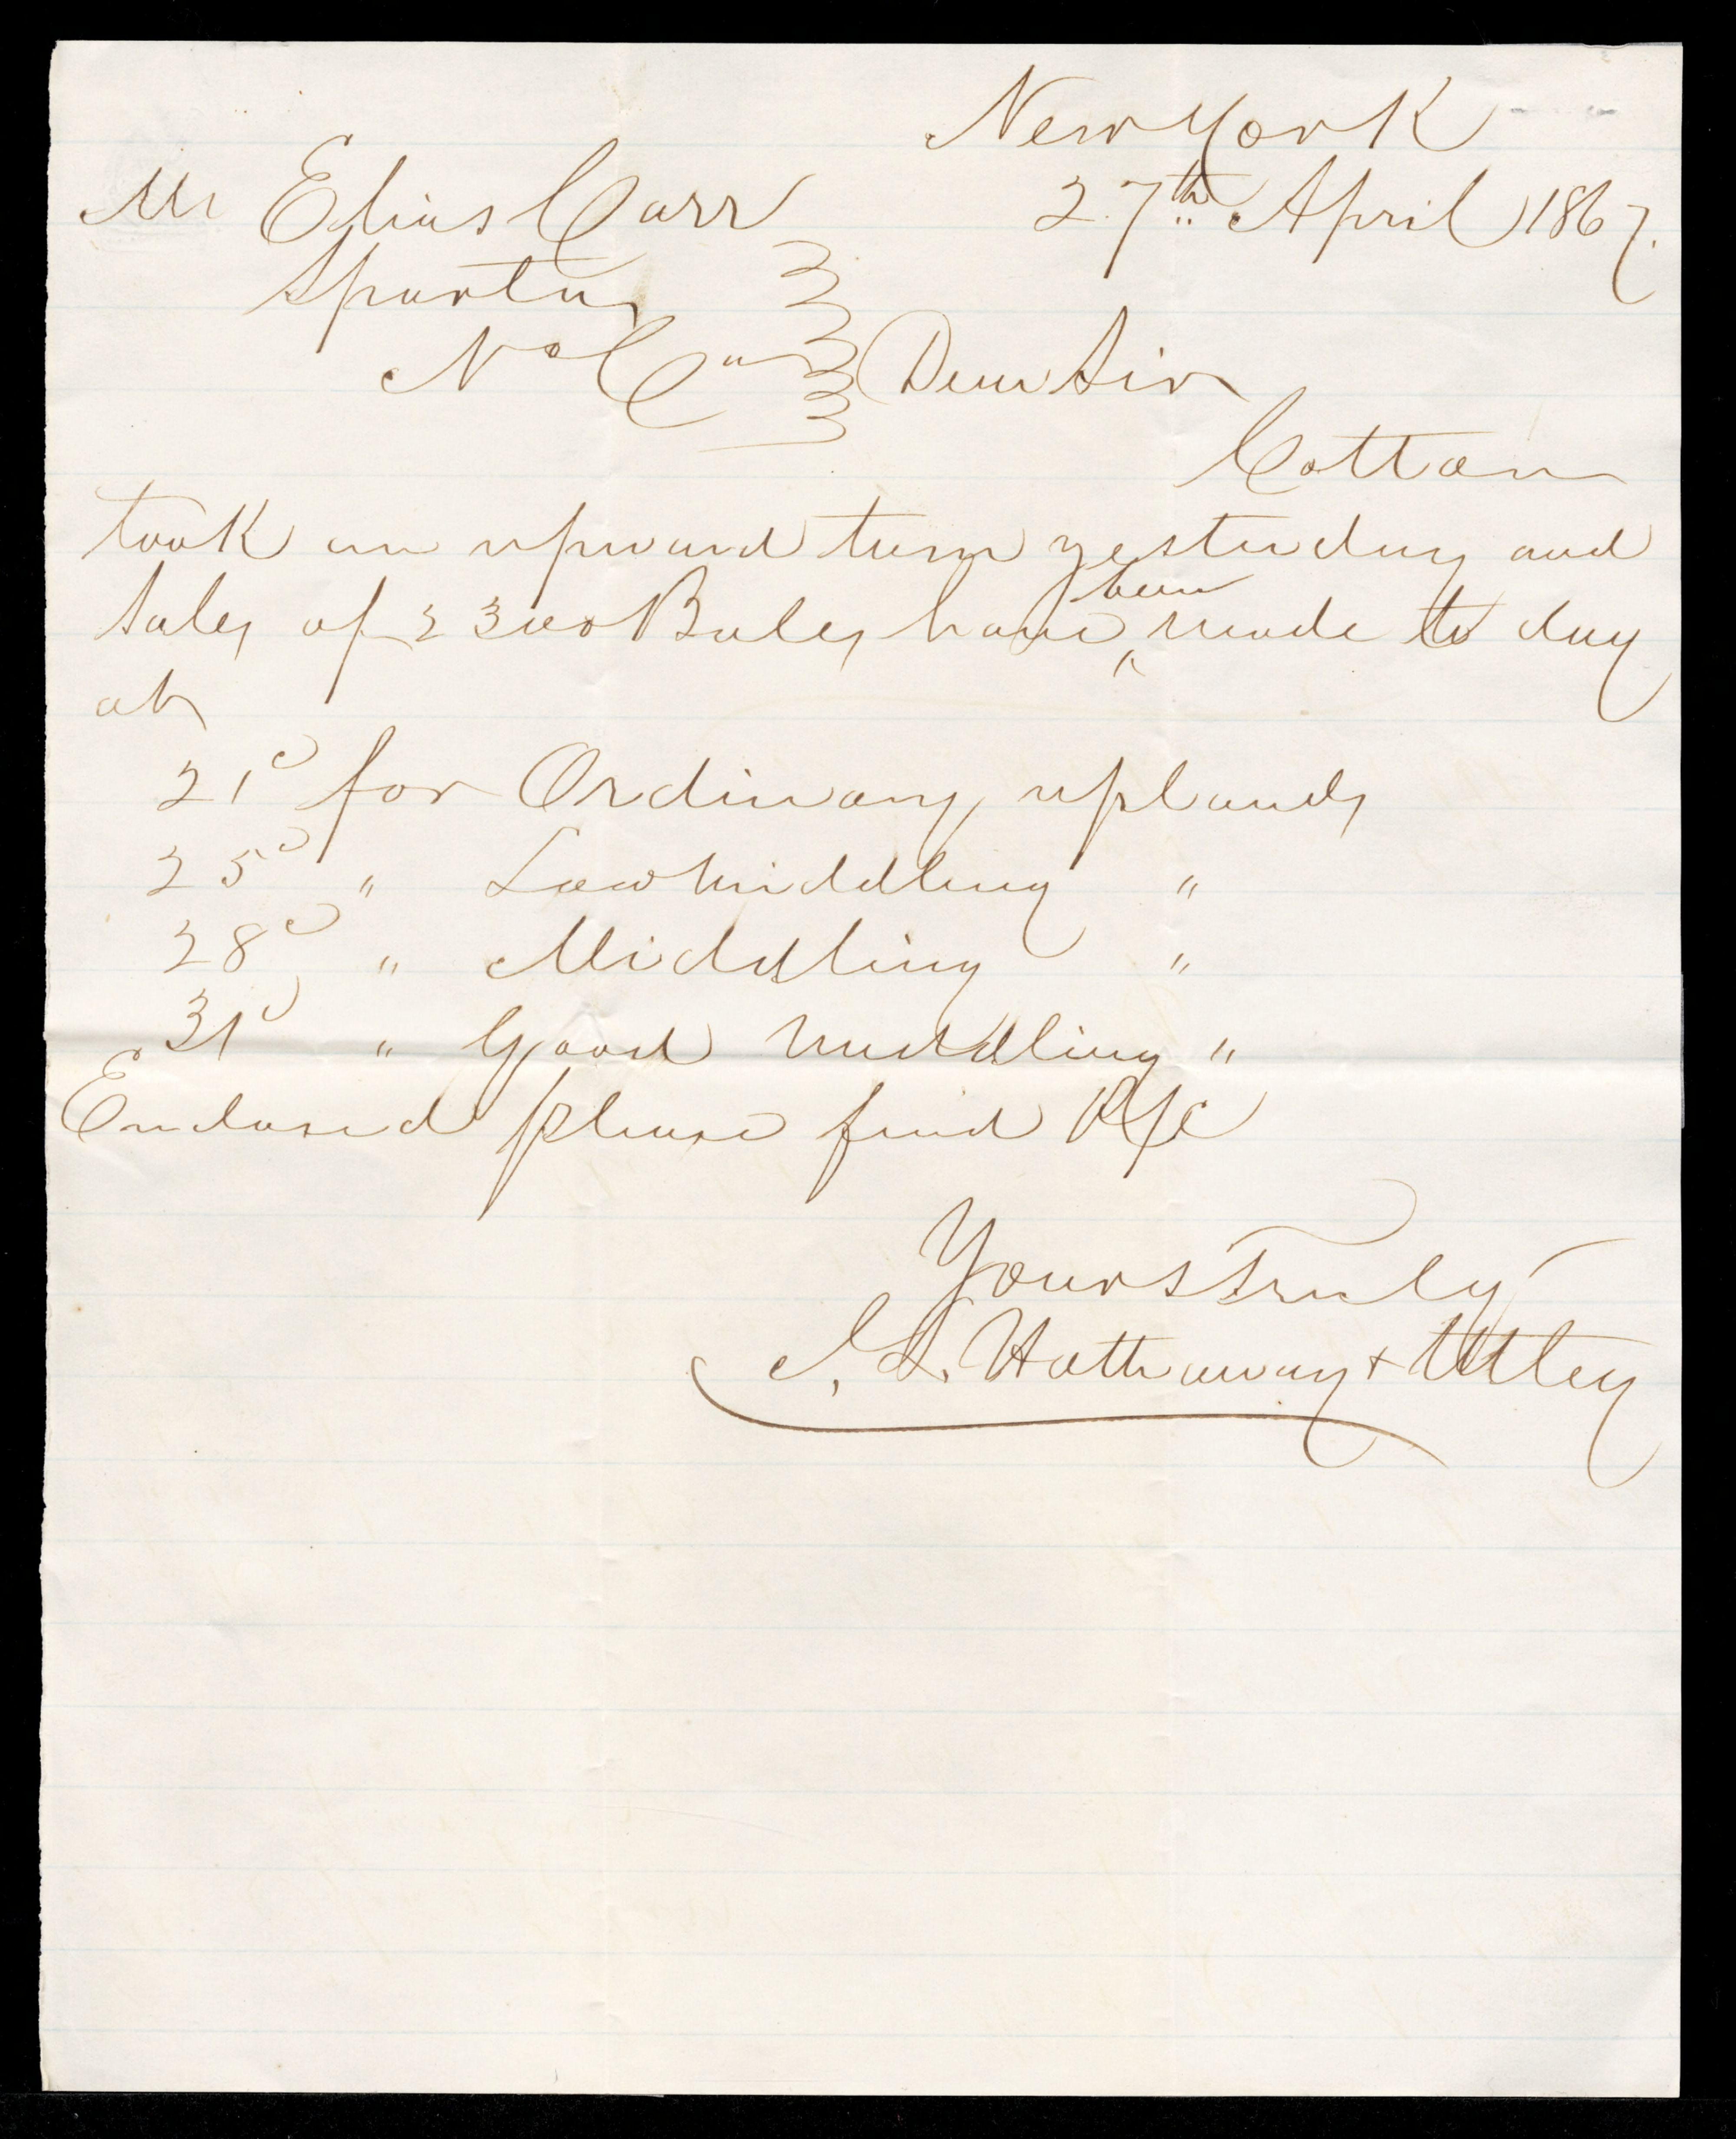 New York
Mr Elias Carr 27th April 1867.
Sparta
No Ca Dear Sir
Cotton
took an upward turn yesterday and
Sales of 2300 Bales have been made to day
at
21c for Ordinary uplands
25c " Low Middling "
28c " Middling "
31c " Good Middling "
Enclosed please find
Yours Truly
J. L. Hathaway & Utley